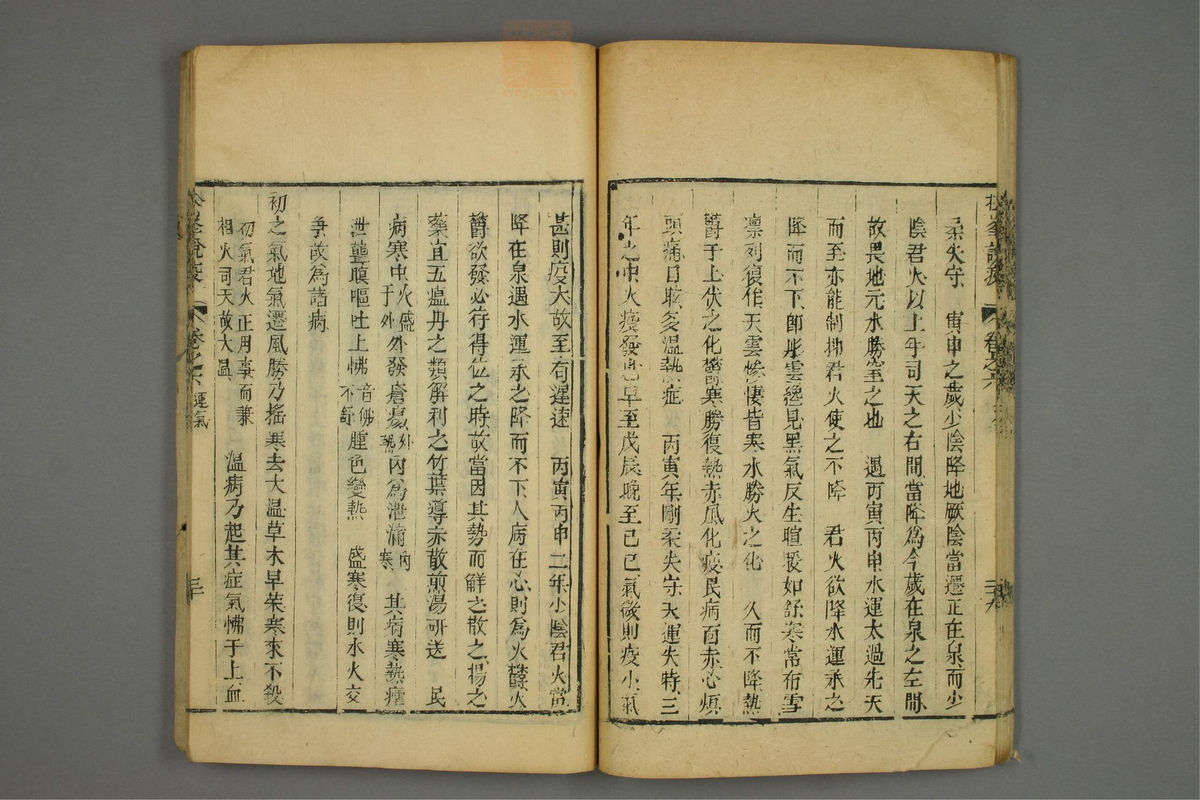 松峯說疫 卷之六 二十九
柔失守 寅申之歲少陰降地厥陰當遷正在泉而少
陰君火以上年司天之右間當降爲今歲在泉之左間
故畏地元水勝窒之也 遇丙寅丙申水運太過先天
而至亦能制抑君火使之不降 君火欲降水運承之
降而不下卽彤雲纔見黑氣反生暄暖如舒寒常布雪
凛冽復作天雲慘悽皆寒水勝火之化 久而不降熱
欝于上伏之化欝寒勝復熱赤風化疫民病面赤心煩
頭痛目眩多溫熱症 丙寅年剛柔失守天運失時三
年之中火疫發也早至戊辰晚至己巳氣微則疫小氣
甚則疫大故至有遲速 丙寅丙申二年少陰君火當
降在泉遇水運承之降而不下人病在心則爲火欝火
欝欲發必待得位之時故當因其勢而解之散之揚之
藥宜五瘟丹之類解利之竹葉導赤散煎湯硏送 民
病寒中火盛于外外發瘡瘍外熱內爲泄滿內寒 其病寒熱瘧
泄聾瞑嘔吐上怫音佛不舒腫色變熱 盛寒復則水火交
爭故爲諸病
初之氣地氣遷風勝乃搖寒去大溫草木早荣寒來不殺
初氣君火正用事而兼相火司天故大溫 溫病乃起其症氣怫于上血
松峯說疫 卷之六 運氣 三十